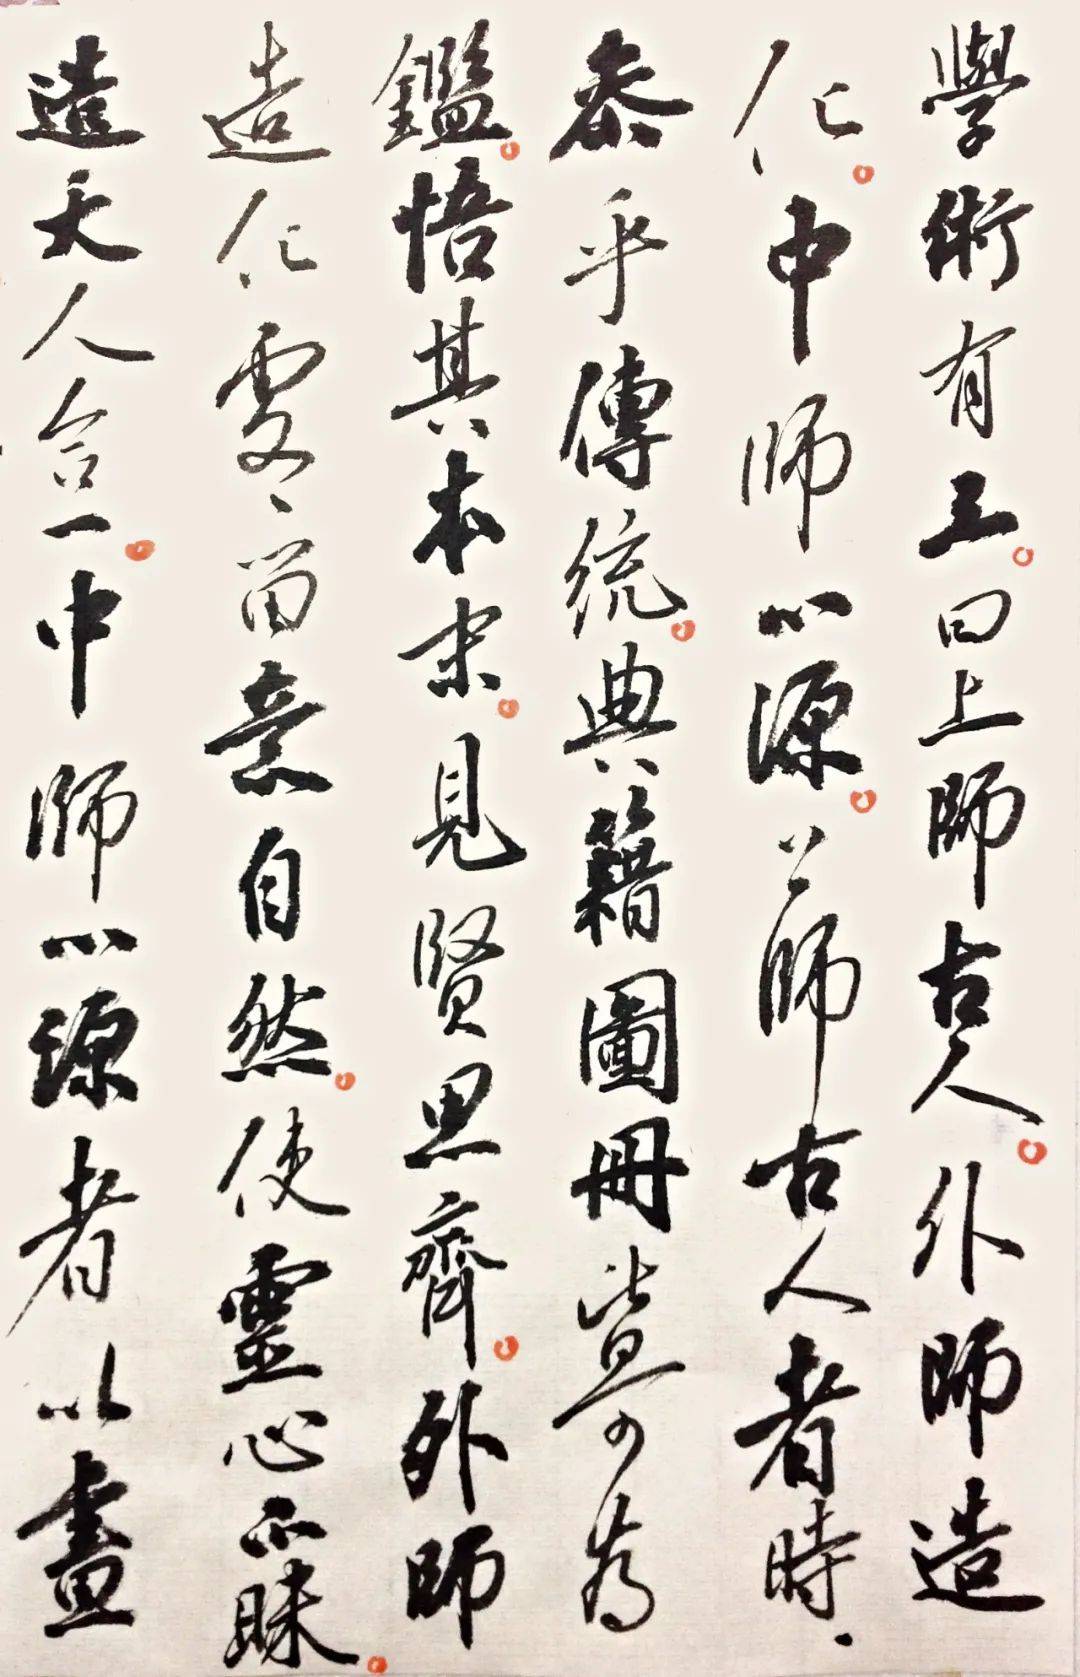 學術有三曰上師古人外師造
化中師心源上師古人者時、
叅乎傳統典籍圖冊皆可為
鑑悟其本見賢思齊外師
造化處、留意自然使靈心不昧
達天人合一中師心源者以畫